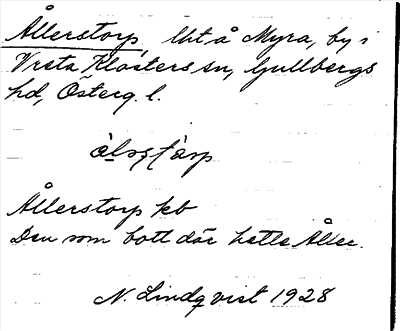 Ållerstorp, lht å Myra, by i
Vreta Klosters sn, Gullbergs
hd, Österg. l.
Ållerstorp kb
Den som bott där hette Åller.
N. Lindqvist 1928